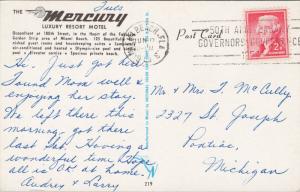 Tues.
THE Mercury
LUXURY RESORT MOTEL
Oceanfront at 180th Street, in the heart of the Fabulous
Golden Strip area of Miami Beach. 125 Beautifully furnished
guest rooms and housekeeping suites
air-conditioned and heated • Olympic-size pool and
pool • Elevator service • Spacious private beach.
Post Card
50TH
GOVERNORS' CONFERENCE
2¢
Hi. Just got here
Found Mom well &
enjoying her stay.
We left there this
morning, got there
last Sat. Having a
wonderful time. Hope
all is O.K. at home.
Audrey & Larry
219
Mr & Mrs F. McCully
2327 St. Joseph
Pontiac,
Michigan